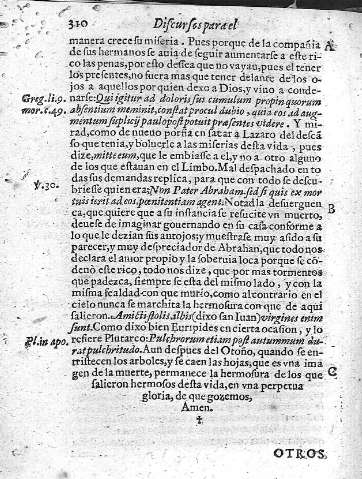 310 Discursos para el
manera crece su miseria. Pues porque de la compañia A
de sus hermanos se auia de seguir aumentarse a este ri
co las penas, por esto dessea que no vayan, pues el tener
los presentes, no fuera mas que tener delante de los o-
jos a aquellos por quien dexo a Dios, y vino a conde-
Greg. li. 9. narse: Qui igitur ad doloris sui cumulum propinquorum
mor. c. 49. absentium meminit, constat procul dubio, quia eos ad aug-
mentum suplicij paulo post potuit præsentes videre. Y mi-
rad, como de nueuo porfia en sacar a Lazaro del descã
so que tenia, y boluerle a las miserias desta vida, pues
dize, mitte eum, que le embiasse a el, y no a otro alguno
de los que estauan en el Limbo. Mal despachado en to
das sus demandas replica, para que con todo se descu-
V. 30. briesse quien era; Non Pater Abraham: sed si quis ex mor
tuis ierit ad eos, pœnitentiam agent. Notad la desuerguen
ça, que quiere que a su instancia se resucite vn muerto, B
deuese de imaginar gouernando en su casa conforme a
lo que le dezian sus antojos; y muestrase muy asido a su
parecer, y muy despreciador de Abrahan, que todo nos
declara el amor propio y la soberuia loca porque se cõ-
denò este rico, todo nos dize, que por mas tormentos
que padezca, siempre se esta del mismo lado, y con la
misma fealdad con que murio, como al contrario en el
cielo nunca se marchita la hermosura con que de aqui
salieron. Amicti stolis albis (dixo san Iuan) virgines enim
sunt. Como dixo bien Euripides en cierta ocasion, y lo
Pl. in apo. refiere Plutarco: Pulchrorum etiam post autumnum du-
rat pulchritudo. Aun despues del Otoño, quando se en-
tristecen los arboles, y se caen las hojas, que es vna ima
gen de la muerte, permanece la hermosura de los que C
salieron hermosos desta vida, en vna perpetua
gloria, de que gozemos,
Amen.
✝
OTROS